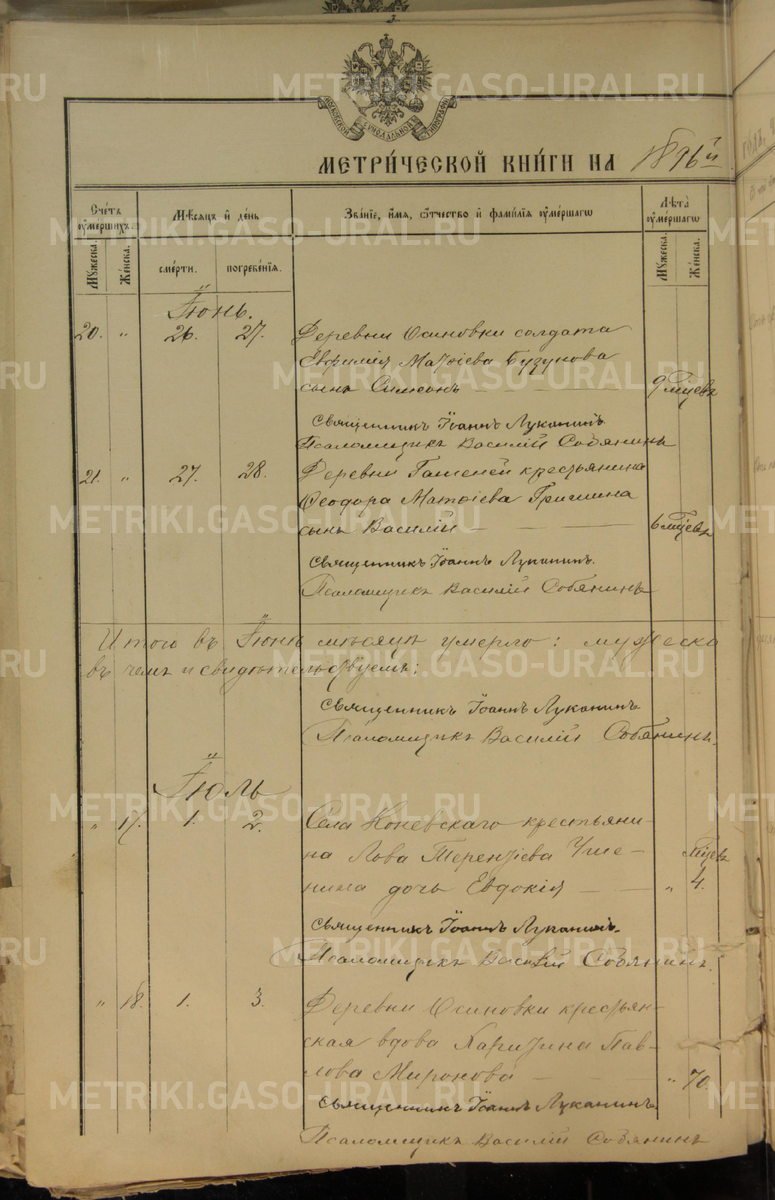 3
МОСКОВСКОЙ СѴНОДАЛЬНОЙ ТИПОГРАФІИ
METRIKI.GASO-URAL.RU
МЕТРИ́ЧЕСКОЙ КНИ́ГИ НА 1896й
Сче́тъ ᲂу҆ме́ршихъ.
Мѣ́сяцъ и҆ де́нь
Зва́нїе, и҆́мя, ѻ҆́тчество и҆ фами́лїя ᲂу҆ме́ршагѡ
Лѣ́та ᲂу҆ме́ршагѡ
Мꙋ́жеска.
Же́нска.
сме́рти.
погребе́нїя.
Мꙋ́жеска
Же́нска.
Іюнь.
20. " 26. 27. Деревни Осиновки солдата
Евфимія Матѳіева Бузунова
сынъ Симеонъ — 9 мѣсцевъ
Священникъ Іоаннъ Луканинъ
Псаломщикъ Василій Собянинъ
21. " 27. 28. Деревни Гашеней крестьянина
Ѳеодора Матѳіева Гришина
сынъ Василій — 6 мѣсцевъ
Священникъ Іоаннъ Луканинъ.
Псаломщикъ Василій Собянинъ
Итого въ Іюнѣ мѣсяцѣ умерло: мужеска
въ чемъ и свидѣтельствуемъ:
Священникъ Іоаннъ Луканинъ
Псаломщикъ Василій Собянинъ.
Іюль
" 17. 1. 2. Села Коневскаго крестьяни-
на Лова Терентіева Уше-
нина дочь Евдокія — " мѣсцевъ 4.
Священникъ Іоаннъ Луканинъ.
Псаломщикъ Василій Собянинъ.
" 18. 1. 3. Деревни Осиновки крестьян-
ская вдова Харитина Пав-
лова Миронова — " 70
Священникъ Іоаннъ Луканинъ
Псаломщикъ Василій Собянинъ